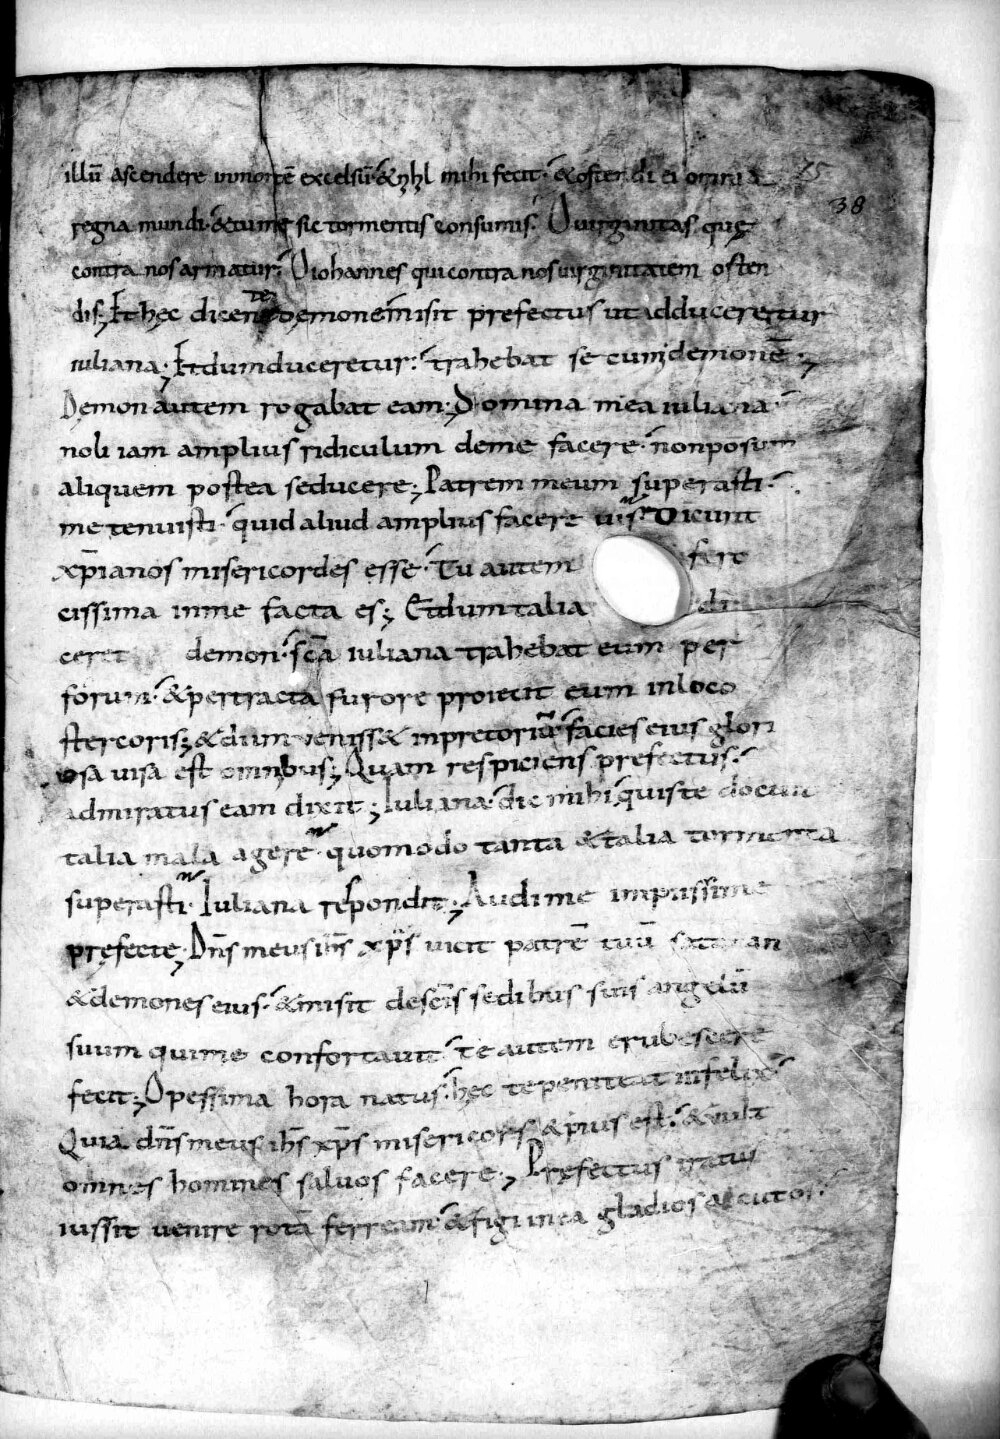 illū ascendere inmontē excelsū & nhl mihi fecit · & ostendi ei omnia 75
regna mundi · & tu me sic tormentis consumis · O uirginitas quę 38
contra nos armatur · O iohannes qui contra nos uirginitatem osten
dis; Et hęc dicente dęmone misit prefectus ut adduceretur
iuliana; Et dum duceretur · trahebat se cum demonē;
Demon autem rogabat eam; Domina mea iuliana
noli iam amplius ridiculum deme facere · non possum
aliquem postea seducere; Patrem meum superasti ·
me tenuisti · quid aliud amplius facere uis · Dicunt
xp̄ianos misericordes esse · Tu autem fero
cissima inme facta es; Et dum talia di
ceret demon · sc̄a iuliana trahebat eum per
forum · & pertracta furore proiecit eum inloco
stercoris; & dum ueniss& inpretoriū facies eius glori
osa uisa est omnibus; Quam respiciens prefectus ·
admiratus eam dixit; Iuliana · dic mihi quis te docuit
talia mala agere · quomodo tanta & talia tormenta
superasti · Iuliana respondit; Audi me impiissime
pręfecte; Dn̄s meus ih̄s xp̄s uicit patrē tuū satanan
& demones eius · & misit desc̄is sedibus suis angelū
suum qui me confortauit · te autem erubescere
fecit; O pessima hora natus · hęc te peniteat infelix ·
Quia dn̄s meus ih̄s xp̄s misericors & pius est · & uult
omnes homines saluos facere; Pręfectus iratus
iussit uenire rotā ferream · & figi inea gladios acutos ·